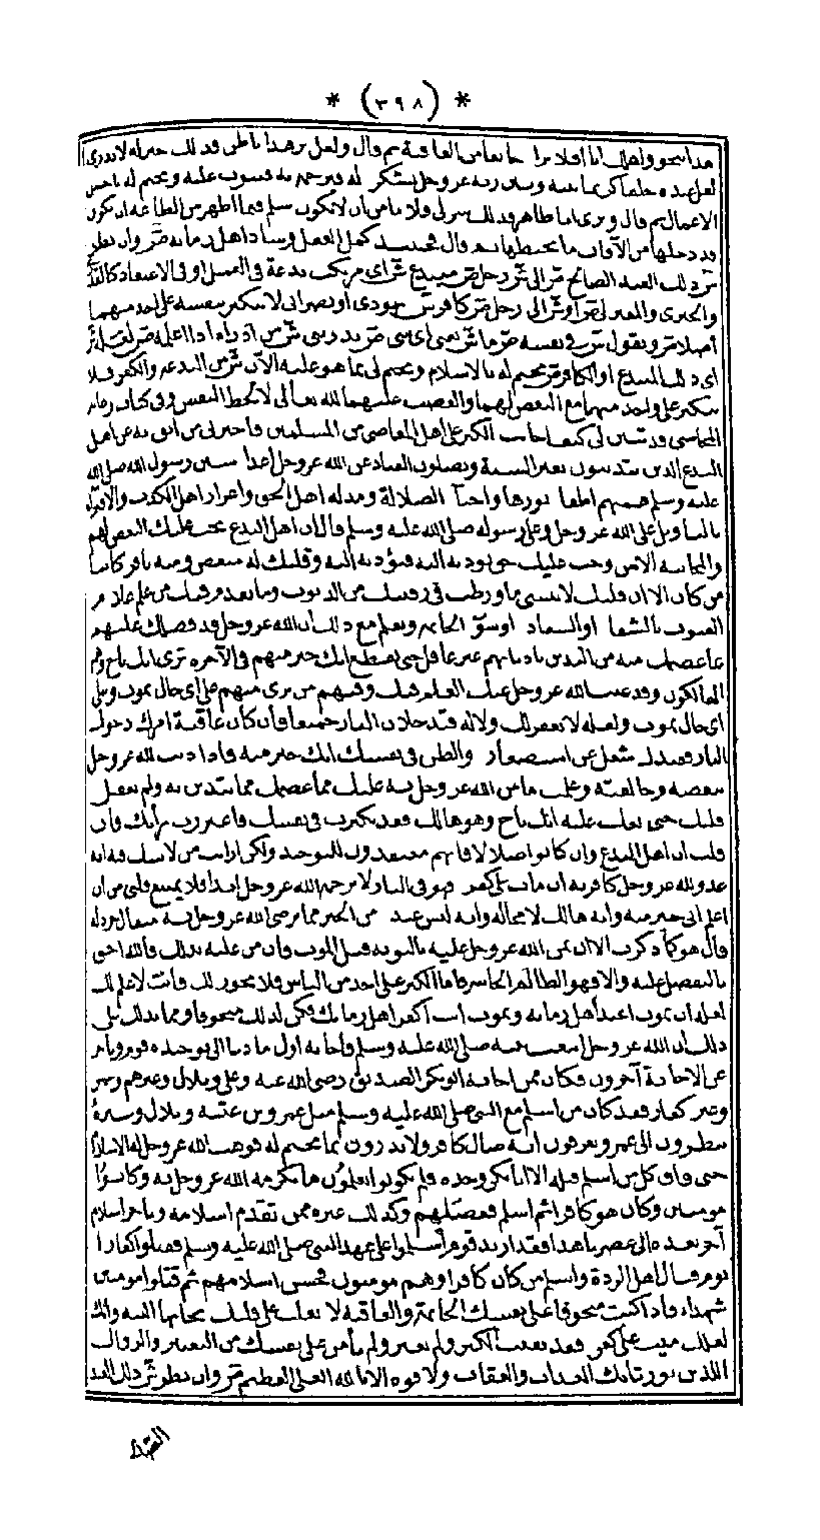 * (٣٩٨) *
هذا ينجو واهلك انا افلا تراه خائفا من العاقبة ثم قال ولعل بر هذا باطن فذلك خير له لا يدرى
لعل فيه خلقا كريما بينه وبين ربه عز وجل يشكر له فيرحمه به فيتوب عليه ويختم له باحسن
الاعمال ثم قال وبرى انا ظاهر وذلك شر لى ولا يأمن ان لا تكون سلم فيما اظهر من الطاعة ان تكون
قد دخلها من الآفات ما يحبطها به قال فحينئذ كمل العقل وساد اهل زمانه ص وان نظر
ش ذلك العبد الصالح ص الى ش رجل ص مبتدع ش اى مرتكب بدعة فى العمل او فى الاعتقاد
والجبرى والمعتزلى ص او ش الى رجل ص كافر ش يهودى او نصرانى لا يتكبر بنفسه على احد منهما
اصلا ص ويقول ش فى نفسه
اى ذلك المبتدع او الكافر ش يختم له بالاسلام ويختم لى بما هو عليه الآن ش من البدعة والكفر فلا
يتكبر على واحد منهما مع البغض لهما والغضب عليهما لله تعالى لا لحظ النفس وفى كتاب رعاية
المحاسبى قد تبين لى كيف اجانب الكبر على اهل المعاصى من المسلمين فاخبرنى من ابق به عن اهل
البدع الذين يتدينون بغير السنة ويضلون العباد عن الله عز وجل اعداء سنن رسول الله صلى الله
عليه وسلم همهم اطفاء نورها واحياء الضلالة ومذلة اهل الحق واعزاز اهل الكذب والافتراء
بالتأويل على الله عز وجل وعلى رسوله صلى الله عليه وسلم قال ان اهل البدع يجب عليك البغض لهم
والمجانبة الا من وجب عليك حق تؤديه اليه فتؤديه اليه وقلبك له مبغض ومنه نافر كائنا
من كان الا ان قلبك لا ينسى ما فرط فى زمنك من الذنوب وما تقدم فيك من علم علام
الغيوب بالشقاء او السعادة او سوء الخاتمة وتعلم مع ذلك ان الله عز وجل قد فضلك عليهم
بما عصمك منه من التدين بأديانهم غير غافل حتى تقطع انك خير منهم فى الآخرة ترى انك ناج وهم
الهالكون وقد غيب الله عز وجل عنك العلم فيك وفيهم من ترى منهم على اى حال يموت وعلى
اى حال تموت ولعله لا يغفر لك ولا له فتدخلان النار جميعا فان كان عاقبة امرك دخول
النار فعندك شغل عن استصغاره والظن فى نفسك انك خير منه فاذا دنت لله عز وجل
ببغضه ومخالفته وعلمت ما من الله عز وجل به عليك مما عصمك مما يتدين به ولم يغفل
قلبك حتى يغلب عليه انك ناج وهو هالك فقد تكبرت فى نفسك واغتررت برأيك فان
قلت ان اهل البدع وان كانوا ضلالا فانهم معتقدون للتوحيد ولكن ارأيت من لا شك فيه انه
عدو لله عز وجل كافر به ان مات على كفره فهو فى النار لا يرحمه الله عز وجل ابدا فلا يمتنع قلبى من ان
اعلم انى خير منه وانه هالك لا محالة وانه ليس عنده من الخير مما يرضى الله عز وجل به مثقال خردلة
قال هو كما ذكرت الا ان يمن الله عز وجل عليه بالتوبة قبل الموت فان من عليه بذلك فالله احق
بالتفضل عليه والا فهو الظالم الخاسر فاما الكبر على احد من الناس فلا يجوز لك فانت لا علم لك
لعله ان يموت اعبد اهل زمانه وتموت انت اكفر اهل زمانك فكن لذلك متخوفا ومما يدلك على
ذلك ان الله عز وجل لما بعث نبيه صلى الله عليه وسلم فاجابه اول ما دعا الى توحيده قوم وتأخر
عن الاجابة آخرون فكان ممن اجابه ابو بكر الصديق رضى الله عنه وعلى وبلال وغيرهم وعمر
وغيره كفار فقد كان من اسلم مع النبى صلى الله عليه وسلم مثل عمرو بن عتبة وبلال وسبرة
ينظرون الى عمر ويعرفون انه ضال كافر ولا يدرون بما يختم له فوهب الله عز وجل له الاسلام
حتى فاق كل من اسلم قبله الا ابا بكر وحده فلم يكونوا يعلمون ما يكرمه الله عز وجل به وكانوا
مؤمنين وكان هو كافرا ثم اسلم ففضلهم وكذلك غيره ممن تقدم اسلامه وتأخر اسلام
آخر بعده الى عصرنا هذا فقد ارتد قوم اسلموا على عهد النبى صلى الله عليه وسلم فقتلوا كفارا
يوم قتال اهل الردة واسلم من كان كافرا وهم مؤمنون فحسن اسلامهم ثم قتلوا مؤمنين
شهداء فاذا كنت متخوفا على نفسك الخاتمة والعاقبة لا يغلب على قلبك نجاتها البتة وانك
لعلك ميت على كفر فقد نفيت الكبر ولم تغتر ولم تأمن على نفسك من التغيير والزوال
اللذين يورثانك العذاب والعقاب ولا قوة الا بالله العلى العظيم ص وان نظر ش ذلك العبد